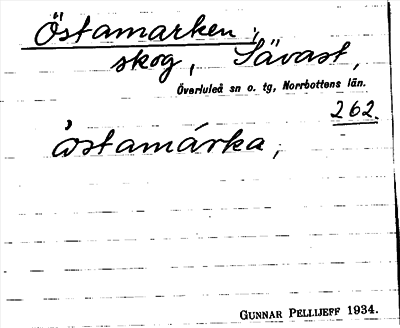 Östamarken;
skog, Sävast,
Överluleå sn o. tg, Norrbottens län.
262.
östamárka;
GUNNAR PELLIJEFF 1934.